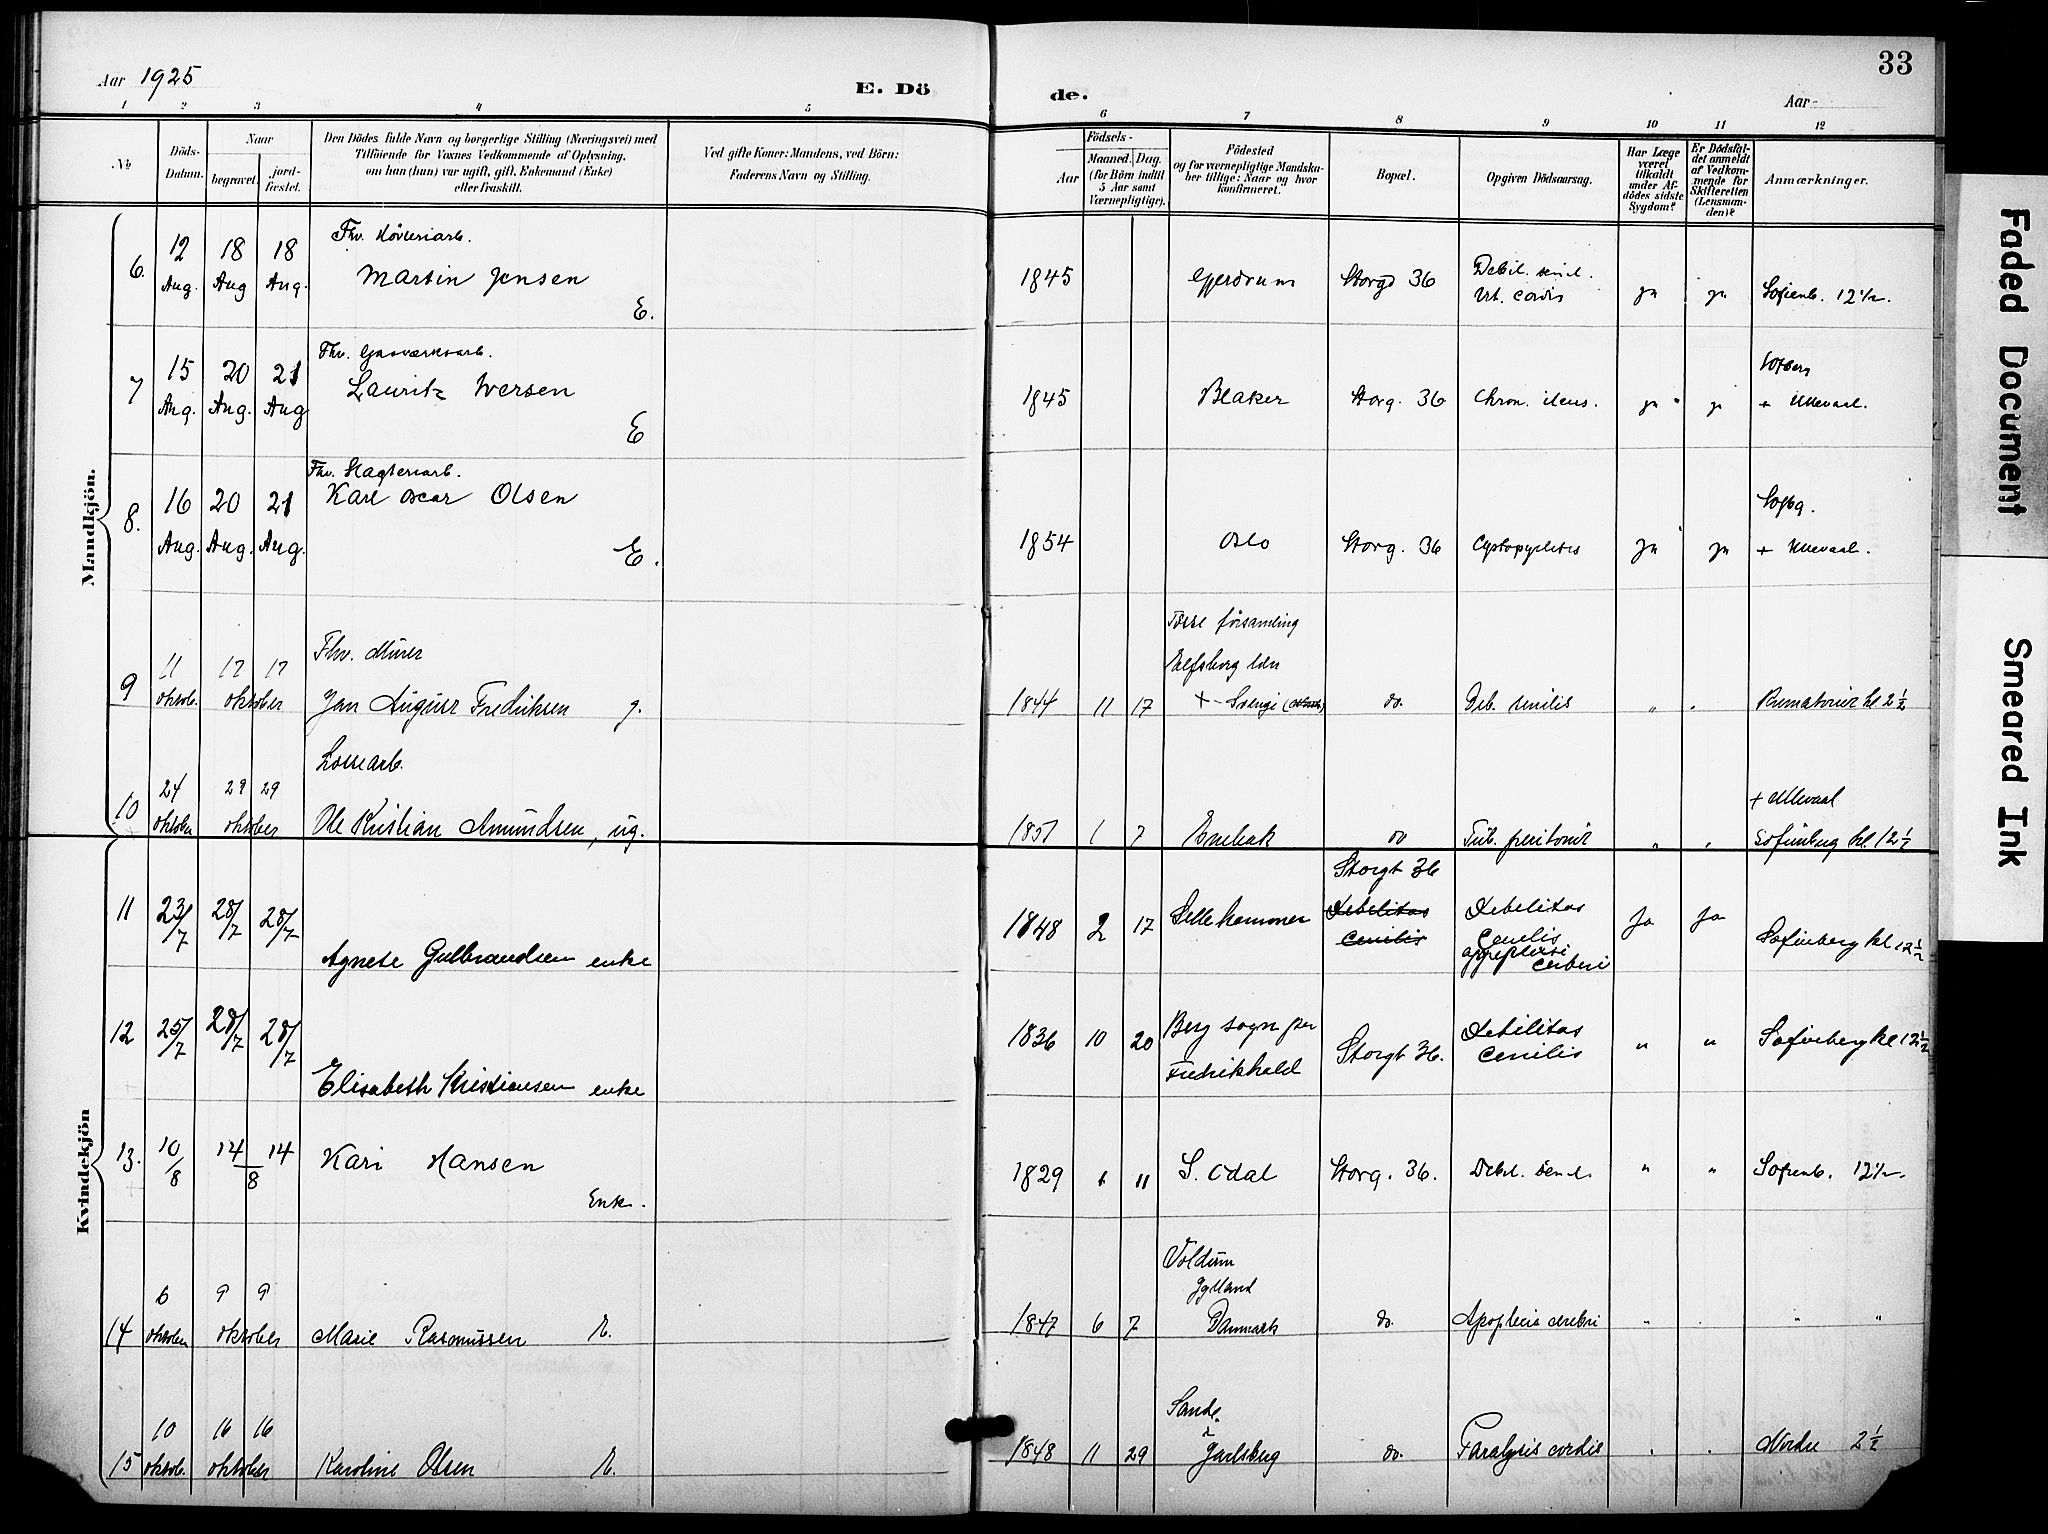 33
Aar 1925
E. Dö
de.
Aar
1 2 3 4 5 6 7 8 9 10 11 12
№
Döds-Datum.
Naar
begravet.
jord-fæstet.
Den Dödes fulde Navn og borgerlige Stilling (Næringsvei) med
Tilföiende for Voxnes Vedkommende af Oplysning,
om han (hun) var ugift, gift, Enkemand (Enke)
eller fraskilt.
Ved gifte Koner: Mandens, ved Börn:
Faderens Navn og Stilling.
Födsels-
Aar
Maaned.
Dag.
(for Börn indtil
5 Aar samt
Værnepligtige).
Födested
og for værnepligtige Mandska-
ber tillige: Naar og hvor
konfirmeret.
Bopæl.
Opgiven Dödsaarsag.
Har Læge
været
tilkaldt
under Af-
dödes sidste
Sygdom?
Er Dödsfal-
det anmeldt
af Vedkom-
mende for
Skifteretten
(Lensman-
den)?
Anmærkninger.
Mandkjön.
Fhv. Høvleriarb.
6. 12 Aug. 18 Aug 18 Aug. Martin Jensen E. 1845 Gjerdrum Storgd 36 Debil. senil. Vit. cordis ja ja Sofienb. 12 1/2.
Fhv. Gasværksarb.
7 15 Aug. 20 Aug. 21 Aug Lauritz Iversen E 1845 Blaker Storg. 36 Chron. ileus. ja ja + Ullevaal.
Fhv. Slagteriarb.
8. 16 Aug. 20 Aug. 21 Aug. Karl Oscar Olsen E. 1854 Oslo Storg. 36 Cystopyelitis ja ja Sofbg. + Ullevaal.
Fhv. Murer
Tösse församling
Elfsborg län
9 11 oktob. 17 17 oktober Jan August Fredriksen g. 1844 11 17 + Sverige do. Deb. senilis " " Krematoriet kl 2 1/2
Lossearb.
10 24 oktober 29 29 oktober Ole Kristian Amundsen, ug. 1857 1 7 Enebak do Tub. peritonit " " + Ullevaal Sofienberg kl. 12 1/2
Kvindekjön
11 23/7 28/7 28/7 Agnete Gulbrandsen enke 1848 2 17 Storgt 36 Debilitas Cenilis Debilitas Cenilis appoplexi cerberi Ja Ja Sofienberg kl 12 1/2
12 25/7 28/7 28/7 Elisabeth Kristiansen enke 1836 10 20 Berg sogn per Fredrikhald Storgt 36. Debilitas Cenilis " " Sofienberg kl 12 1/2
13. 10/8 14 14 8 Kari Hansen Enke. 1829 6 11 S. Odal Storg. 36. Debil. senil. " " Sofienb. 12 1/2.
Voldum
Jylland
14 6 oktober 9 9 oktober Marie Rasmussen E. 1847 6 7 Danmark do. Apoplexia cerebri " " " "
Sande
i
15 10 oktob. 16 16 oktober Karoline Olsen E. 1848 11 29 Jarlsberg do. Paralysis cordis " " Nordre 2 1/2
Faded Document
Smeared Ink